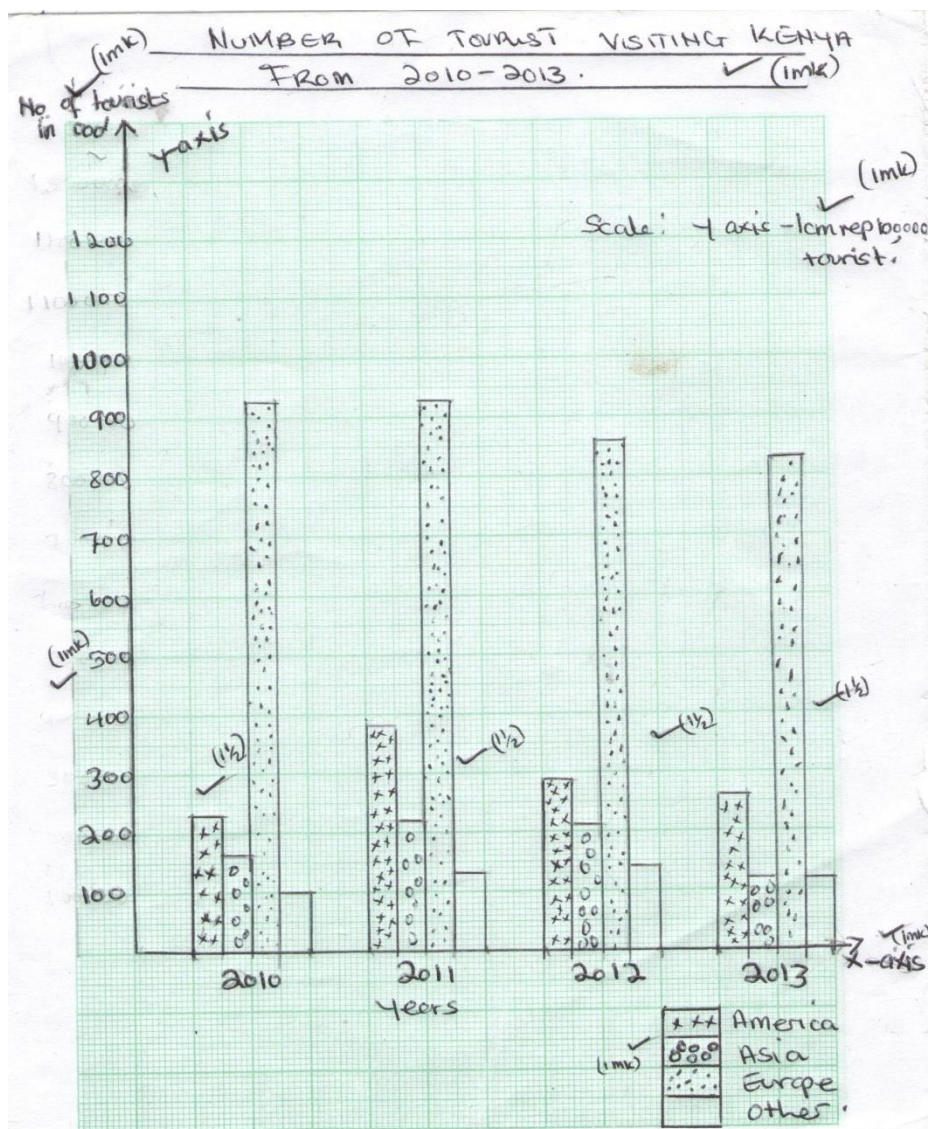 NUMBER OF TOURIST VISTING KENYA
(1mk)
FROM 2010-2013.
(1mk)
No. of tourists
in 000'
y axis
(1mk)
Scale: Y axis - 1cm rep 100000
tourist.
1200
1100
1000
900
800
700
600
(1mk)
500
400
300
200
100
(1½)
(1½)
(1½)
(1½)
2010 2011 2012 2013
(1mk)
x-axis
years
(1mk)
America
Asia
Europe
Other.